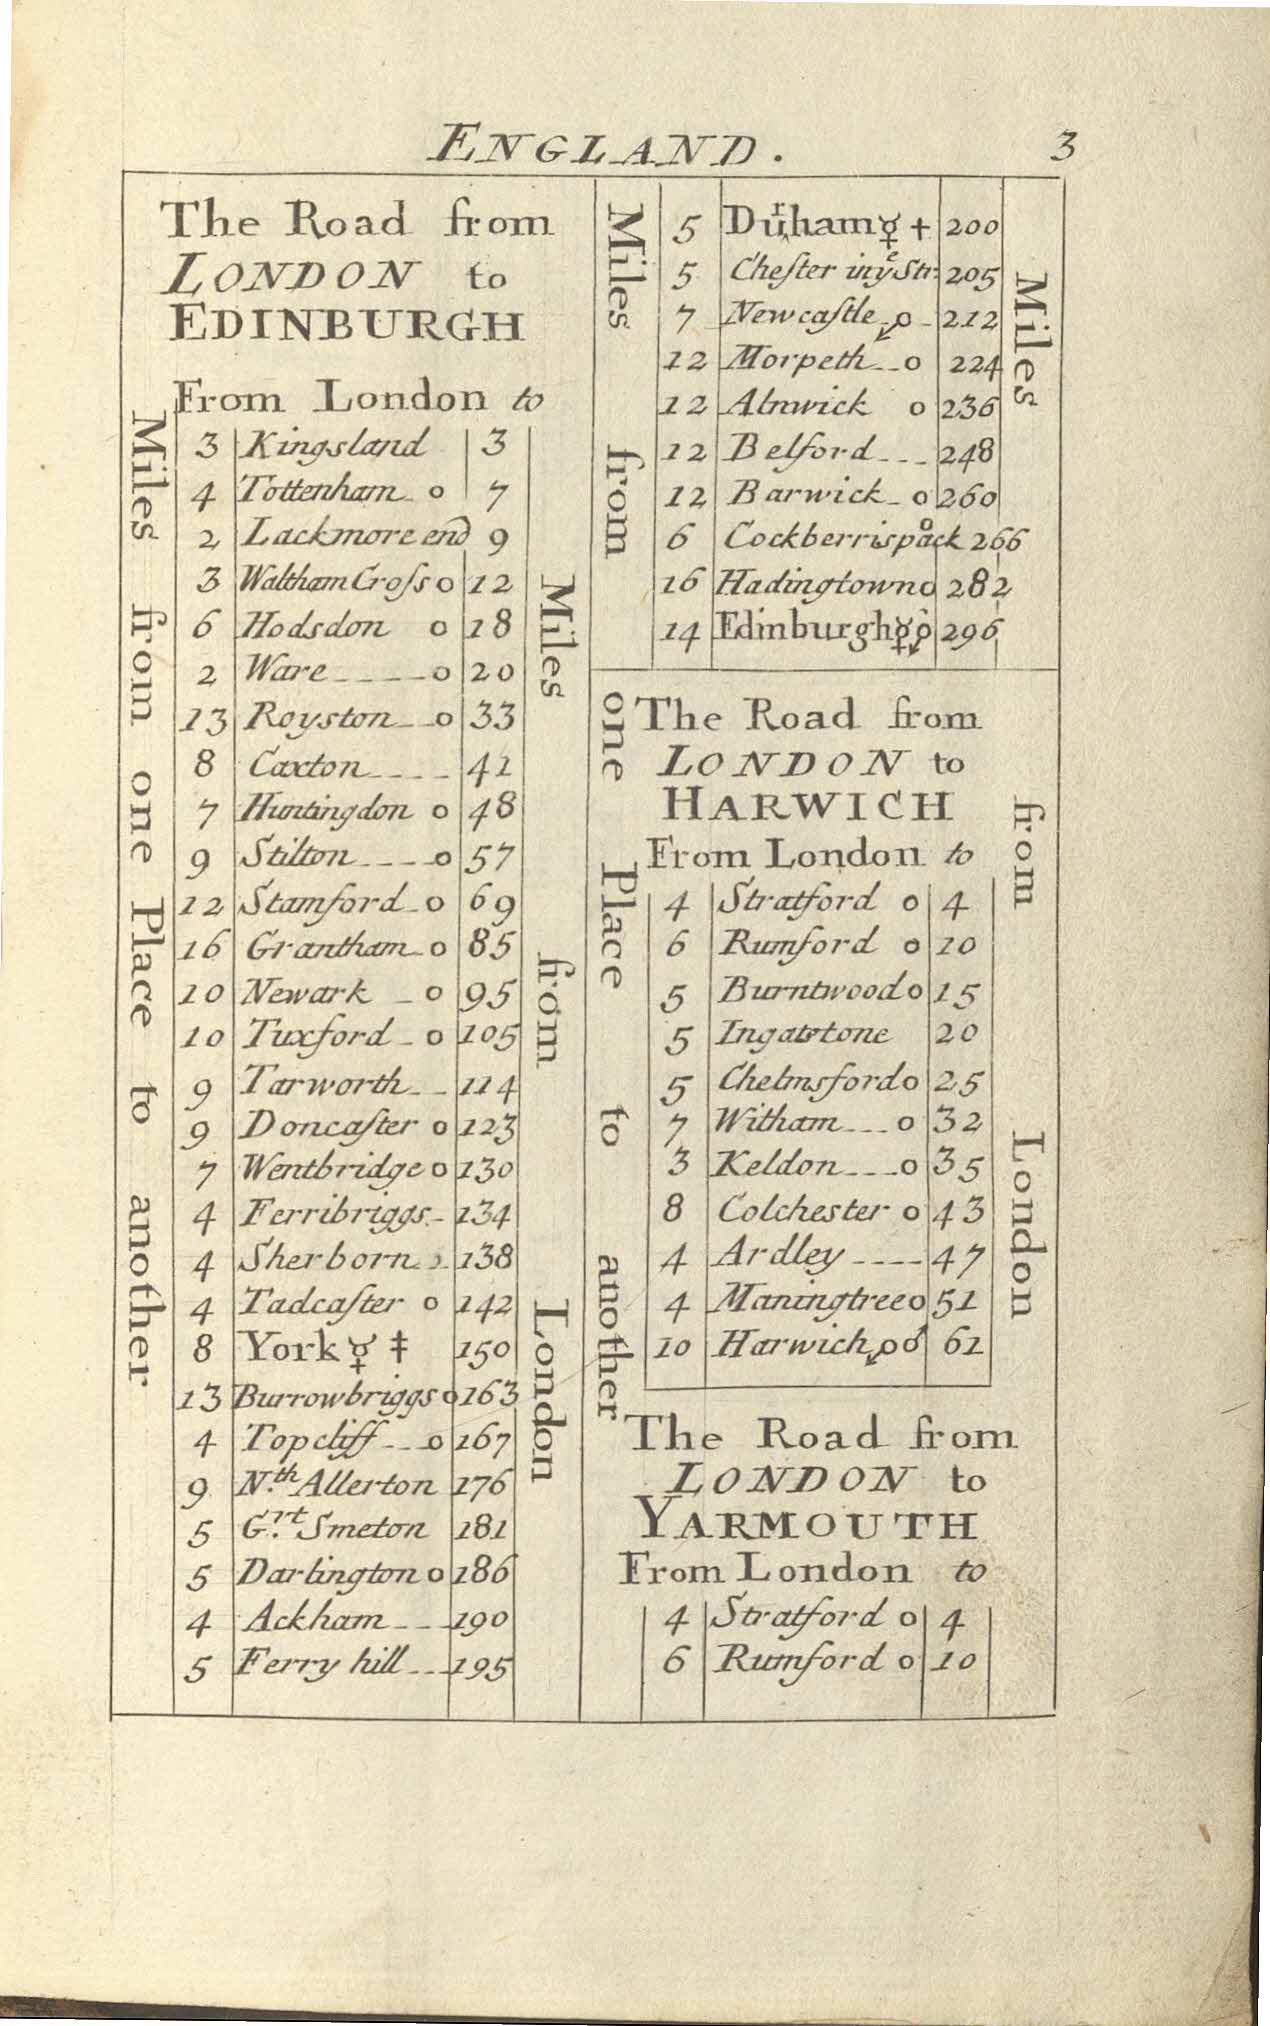 ENGLAND. 3
The Road from
LONDON to
EDINBURGH
From London to
Miles from one Place to another
Miles from London
3 Kingsland 3
4 Tottenham o 7
2 Lackmore end 9
3 Waltham Croſs o 12
6 Hodsdon o 18
2 Ware o 20
13 Royston o 33
8 Caxton 41
7 Huntingdon o 48
9 Stilton o 57
12 Stamford o 69
16 Grantham o 85
10 Newark o 95
10 Tuxford o 105
9 Tarworth 114
9 Doncaſter o 123
7 Wentbridge o 130
4 Ferribriggs 134
4 Sherborn 138
4 Tadcaſter o 142
8 York ☿ ‡ 150
13 Burrowbriggs o 163
4 Topcliff o 167
9 N.th Allerton 176
5 G.rt Smeton 181
5 Darlington o 186
4 Ackham 190
5 Ferry hill 195
Miles from one Place to another
Miles from London
5 Durham ☿ + 200
5 Cheſter in ye Str: 205
7 Newcaſtle 212
12 Morpeth o 224
12 Alnwick o 236
12 Belford 248
12 Barwick o 260
6 Cockberrispack o 266
16 Hadingtown o 282
14 Edinburgh ☿ 296
The Road from
LONDON to
HARWICH
From London to
4 Stratford o 4
6 Rumford o 10
5 Burntwood o 15
5 Ingatstone 20
5 Chelmsford o 25
7 Witham o 32
3 Keldon o 35
8 Colchester o 43
4 Ardley 47
4 Maningtree o 51
10 Harwich ♂ 61
The Road from
LONDON to
YARMOUTH
From London to
4 Stratford o 4
6 Rumford o 10